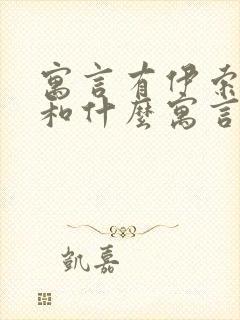 寓言有伊索
和什麼寓言
凱嘉